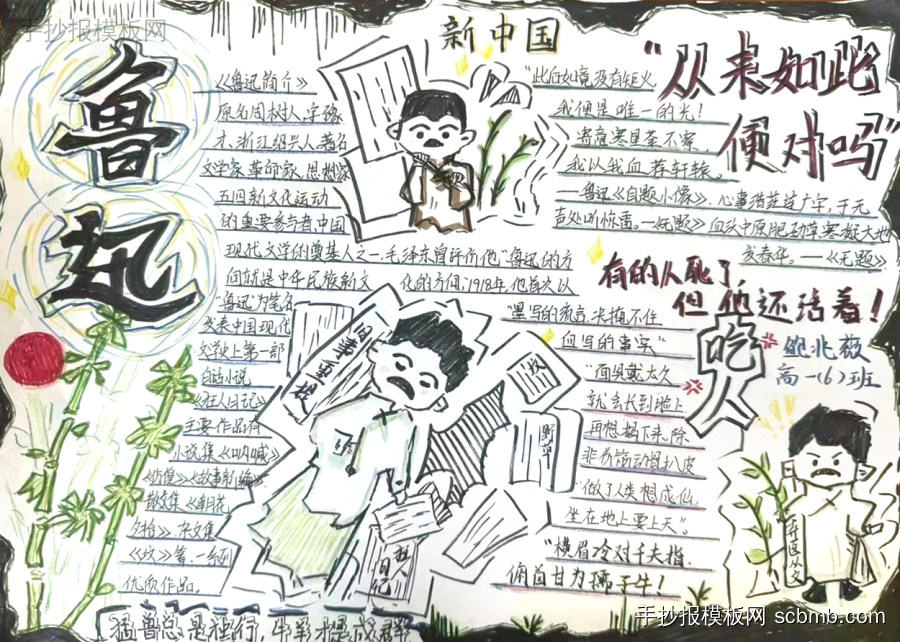 手抄报模板网
新中国
鲁迅
"从来如此
便对吗"
《鲁迅简介》
原名周树人,字豫
才,浙江绍兴人,著名
文学家,革命家,思想家
五四新文化运动
的重要参与者,中国
现代文学的奠基人之一,毛泽东曾评价他"鲁迅的方
向就是中华民族新文化的方向"1918年,他首次以
"鲁迅"为笔名
发表中国现代
文学史上第一部
白话小说
《狂人日记》
主要作品有
小说集《呐喊》
《彷徨》《故事新编》
散文集《朝花
夕拾》杂文集
《坟》等一系列
优质作品。
"此后如竟没有炬火
我便是唯一的光!
寄意寒星荃不察,
我以我血荐轩辕。
——鲁迅《自题小像》心事浩茫连广宇,于无
声处听惊雷。—《无题》血沃中原肥劲草寒凝大地
发春华。——《无题》
有的人死了,
但他还活着!
"墨写的谎言,决掩不住
血写的事实"
"面具戴太久
就会长到脸上
再想揭下来,除
非伤筋动骨扒皮
"做了人类想成仙,
坐在地上要上天"。
"横眉冷对千夫指,
俯首甘为孺子牛!
吃人
鲍兆薇
高一(6)班
故事新编
呐喊
野草
狂人日记
弃医从文
猛兽总是独行,牛羊才成群
手抄报模板网 scbmb.com